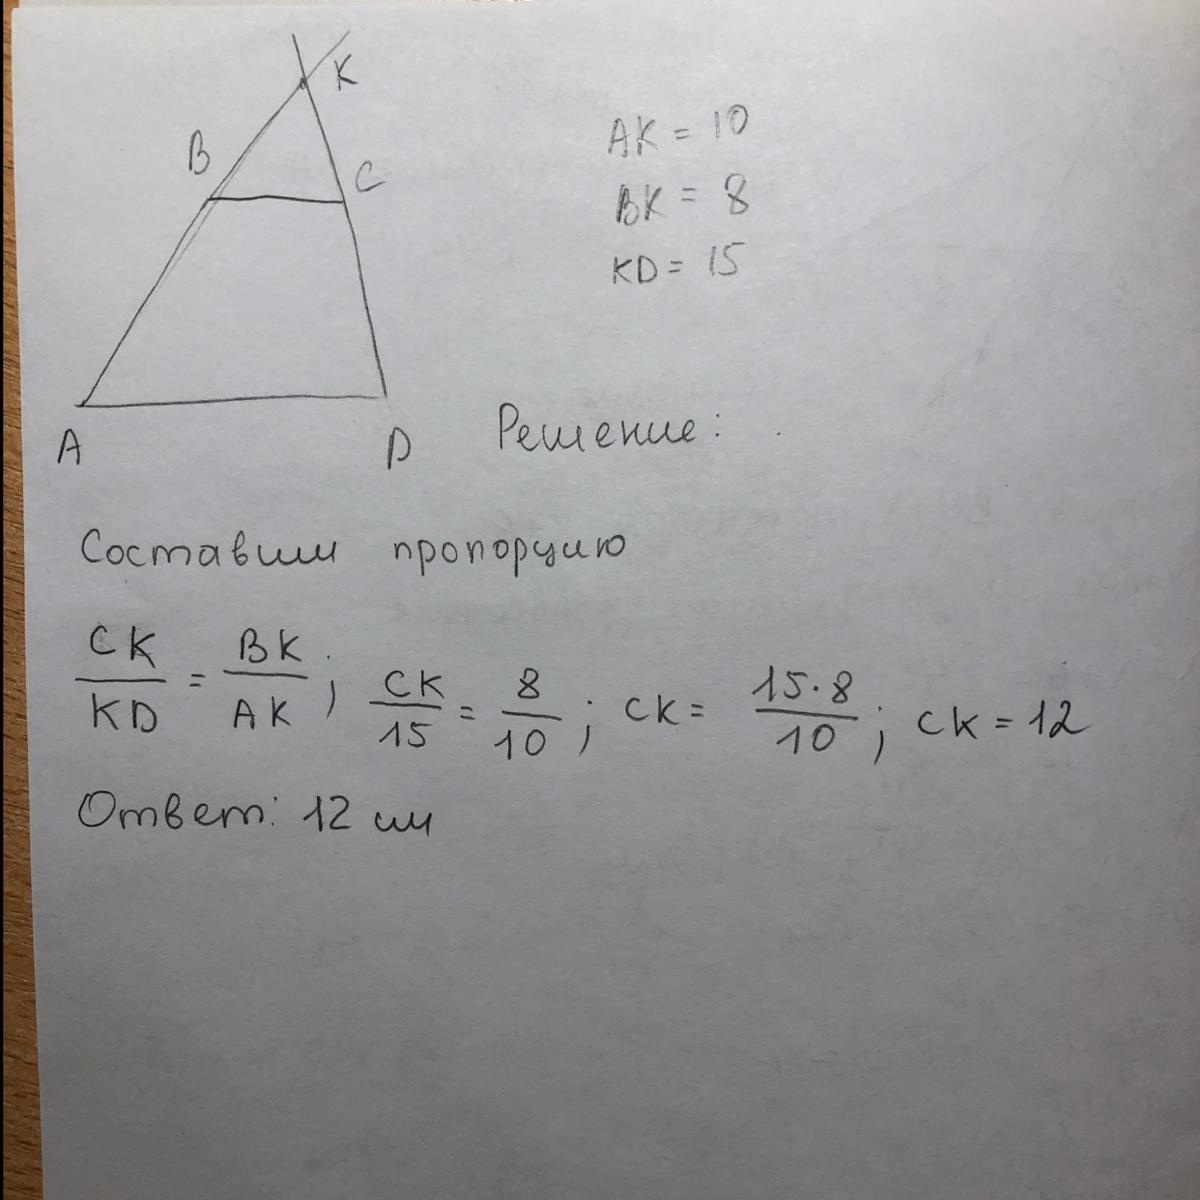 K
B
C
AK = 10
BK = 8
KD = 15
A
D
Решение:
Составим пропорцию
CK/KD = BK/AK; CK/15 = 8/10; CK = 15·8/10; CK = 12
Ответ: 12 см